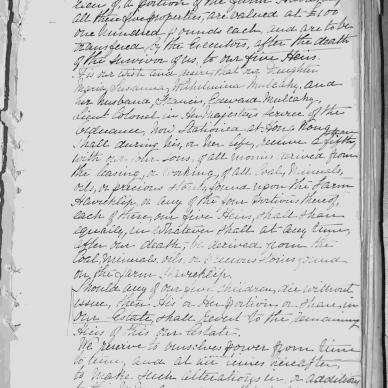 lien of a portion of the Farm
all these five properties, are valued at £100
one hundred pounds each and are to be
transfered, by the Executors, after the death
of the Survivor of us, to our five Heirs.
It is our wish and desire, that our daughter
Maria, Susanna, Wilhelmina Mulcahy, and
her husband, Francis, Edward Mulcahy,
Lieut Colonel in Her Majesty's Service of the
Ordnance, now Stationed at Hong Kong
Shall during his, or her life, receive a fifth, share
with our other Sons, of all monies derived from
the leasing, or working, of all Coal, Minerals,
oils, or precious stones, found upon the Farm
Haverklip, or any of the four portions thereof,
each of these, our five Heirs, shall share
equally, in whatever shall at any time,
after our death, be derived from the
Coal, Minerals, oils, or Precious Stones found
on the Farm Haverklip.
Should any of our five children, die without
issue, then His or Her portion or share, in
our Estate, shall revert to the remaining
Heirs of this our Estate.
We reserve to ourselves power from time
to time, and at all times hereafter,
to make such alterations in, or additions